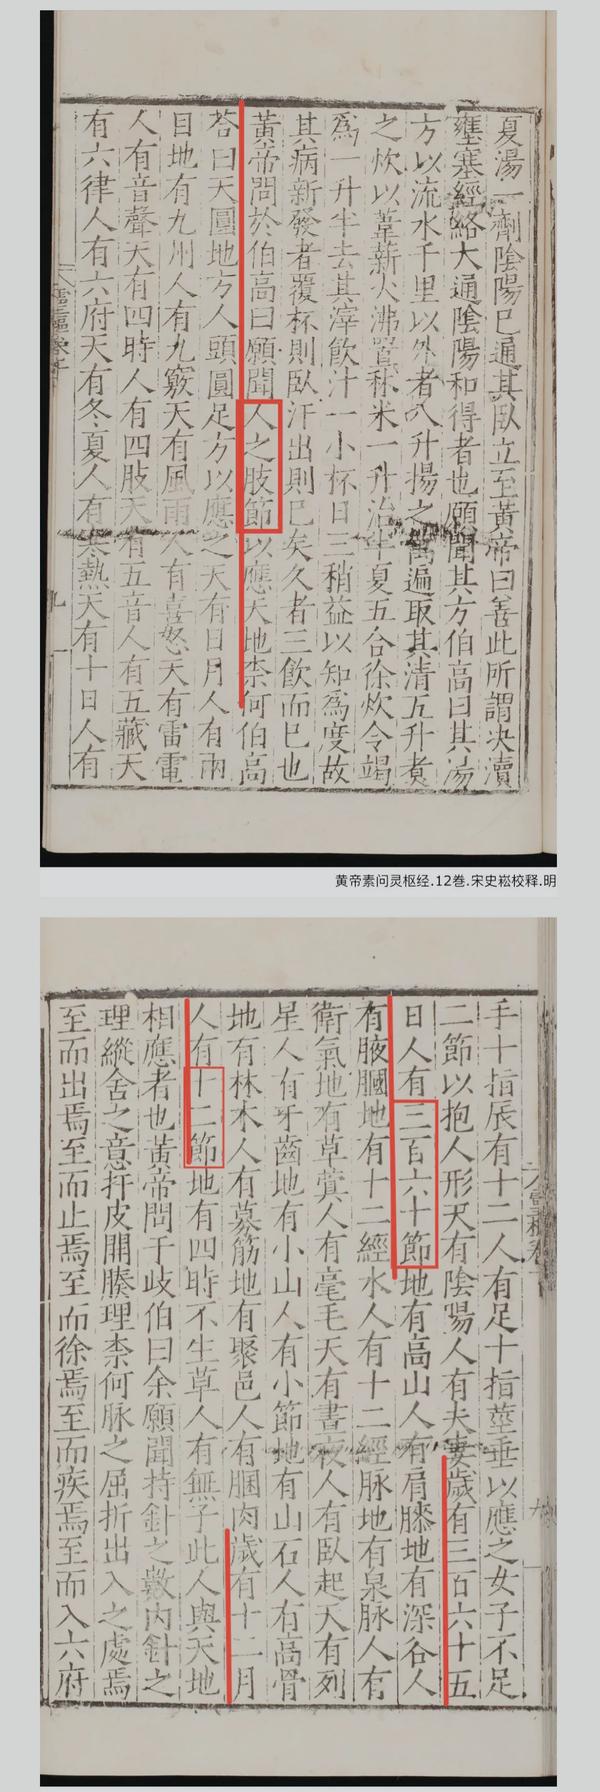 夏湯一劑陰陽已通其臥立至黃帝曰善此所謂决瀆
壅塞經絡大通陰陽和得者也願聞其方伯高曰其湯
方以流水千里以外者八升揚之萬遍取其清五升煮
之炊以葦薪火沸置秫米一升治半夏五合徐炊令竭
爲一升半去其滓飲汁一小杯日三稍益以知爲度故
其病新發者覆杯則臥汗出則已矣久者三飲而已也
黃帝問於伯高曰願聞人之肢節以應天地柰何伯高
荅曰天圓地方人頭圓足方以應之天有日月人有兩
目地有九州人有九竅天有風雨人有喜怒天有雷電
人有音聲天有四時人有四肢天有五音人有五藏天
有六律人有六府天有冬夏人有寒熱天有十日人有
黄帝素问灵枢经.12卷.宋史崧校释.明
手十指辰有十二人有足十指莖垂以應之女子不足
二節以抱人形天有陰陽人有夫妻歲有三百六十五
日人有三百六十節地有高山人有肩膝地有深谷人
有腋膕地有十二經水人有十二經脉地有泉脉人有
衛氣地有草蓂人有毫毛天有晝夜人有臥起天有列
星人有牙齒地有小山人有小節地有山石人有高骨
地有林木人有募筋地有聚邑人有膕肉歲有十二月
人有十二節地有四時不生草人有無子此人與天地
相應者也黃帝問于歧伯曰余願聞持針之數内針之
理縱舍之意扞皮開腠理柰何脉之屈折出入之處焉
至而出焉至而止焉至而徐焉至而疾焉至而入六府